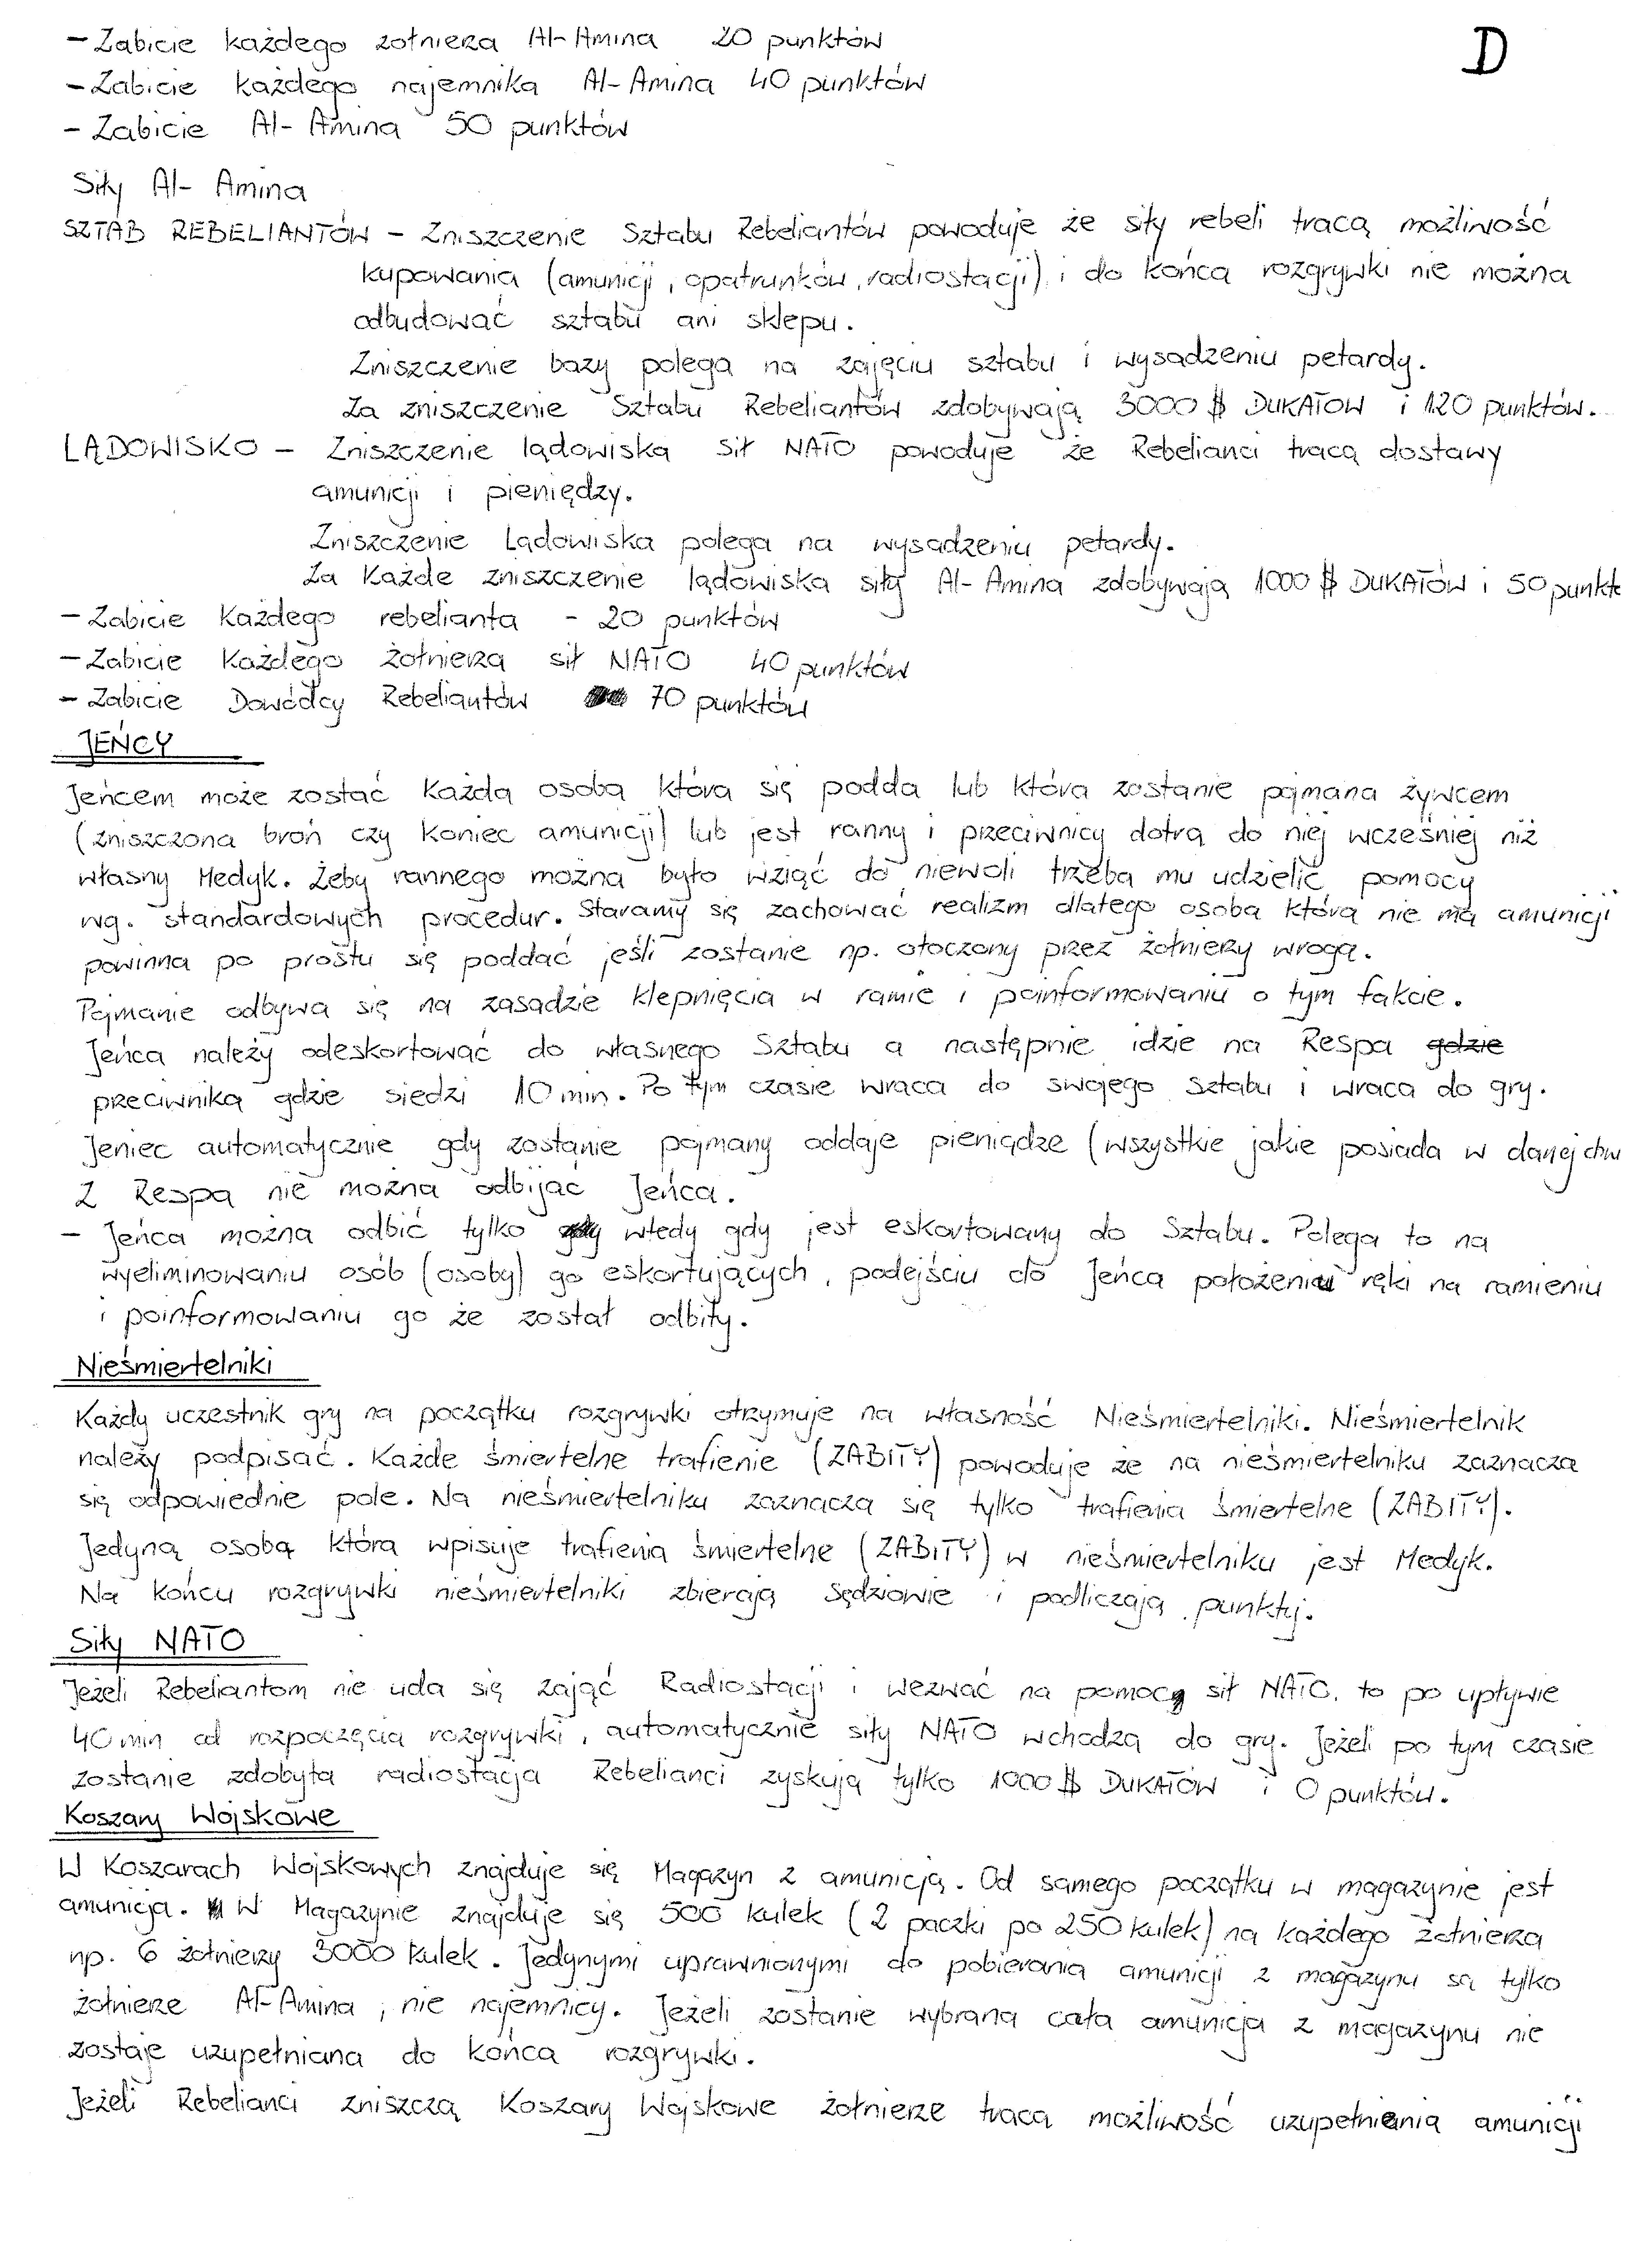 - Zabicie każdego żołnierza Al-Amina 20 punktów
D
- Zabicie każdego najemnika Al-Amina 40 punktów
- Zabicie Al-Amina 50 punktów
Siły Al-Amina
SZTAB REBELIANTÓW - Zniszczenie Sztabu Rebeliantów powoduje że siły rebeli tracą możliwość
kupowania (amunicji, opatrunków, radiostacji) i do końca rozgrywki nie można
odbudować sztabu ani sklepu.
Zniszczenie bazy polega na zajęciu sztabu i wysadzeniu petardy.
Za zniszczenie Sztabu Rebeliantów zdobywają 3000 $ DUKATOW i 120 punktów.
LĄDOWISKO - Zniszczenie lądowiska sił NATO powoduje że Rebelianci tracą dostawy
amunicji i pieniędzy.
Zniszczenie Lądowiska polega na wysadzeniu petardy.
Za Każde zniszczenie lądowiska siły Al-Amina zdobywają 1000 $ DUKATÓW i 50 punkt
- Zabicie Każdego rebelianta - 20 punktów
- Zabicie Każdego żołnierza sił NATO 40 punktów
- Zabicie Dowódcy Rebeliantów 70 punktów
JEŃCY
Jeńcem może zostać Każda osoba która się podda lub która zostanie pojmana żywcem
(zniszczona broń czy koniec amunicji) lub jest ranny i przeciwnicy dotrą do niej wcześniej niż
własny Medyk. Żeby rannego można było wziąć do niewoli trzeba mu udzielić pomocy
wg. standardowych procedur. Staramy się zachować realizm dlatego osoba która nie ma amunicji
powinna po prostu się poddać jeśli zostanie np. otoczony przez żołnierzy wroga.
Pojmanie odbywa się na zasadzie klepnięcia w ramie i poinformowaniu o tym fakcie.
Jeńca należy odeskortować do własnego Sztabu a następnie idzie na Respa gdzie
przeciwnika gdzie siedzi 10 min. Po tym czasie wraca do swojego Sztabu i wraca do gry.
Jeniec automatycznie gdy zostanie pojmany oddaje pieniądze (wszystkie jakie posiada w danej chw
Z Respa nie można odbijać Jeńca.
- Jeńca można odbić tylko wtedy gdy jest eskortowany do Sztabu. Polega to na
wyeliminowaniu osób (osoby) go eskortujących, podejściu do Jeńca położeniu ręki na ramieniu
i poinformowaniu go że został odbity.
Nieśmiertelniki
Każdy uczestnik gry na początku rozgrywki otrzymuje na własność Nieśmiertelniki. Nieśmiertelnik
należy podpisać. Każde śmiertelne trafienie (ZABITY) powoduje że na nieśmiertelniku zaznacza
się odpowiednie pole. Na nieśmiertelniku zaznacza się tylko trafienia śmiertelne (ZABITY).
Jedyną osobą która wpisuje trafienia śmiertelne (ZABITY) w nieśmiertelniku jest Medyk.
Na końcu rozgrywki nieśmiertelniki zbierają Sędziowie i podliczają punkty.
Siły NATO
Jeżeli Rebeliantom nie uda się zająć Radiostacji i wezwać na pomocy sił NATO, to po upływie
40 min od rozpoczęcia rozgrywki, automatycznie siły NATO wchodzą do gry. Jeżeli po tym czasie
zostanie zdobyta radiostacja Rebelianci zyskują tylko 1000 $ DUKATÓW i 0 punktów.
Koszary Wojskowe
W Koszarach Wojskowych znajduje się Magazyn z amunicją. Od samego początku w magazynie jest
amunicja. W Magazynie znajduje się 500 kulek (2 paczki po 250 kulek) na każdego żołnierza
np. 6 żołnierzy 3000 kulek. Jedynymi uprawnionymi do pobierania amunicji z magazynu są tylko
żołnierze Al-Amina, nie najemnicy. Jeżeli zostanie wybrana cała amunicja z magazynu nie
zostaje uzupełniana do końca rozgrywki.
Jeżeli Rebelianci zniszczą Koszary Wojskowe żołnierze tracą możliwość uzupełniania amunicji